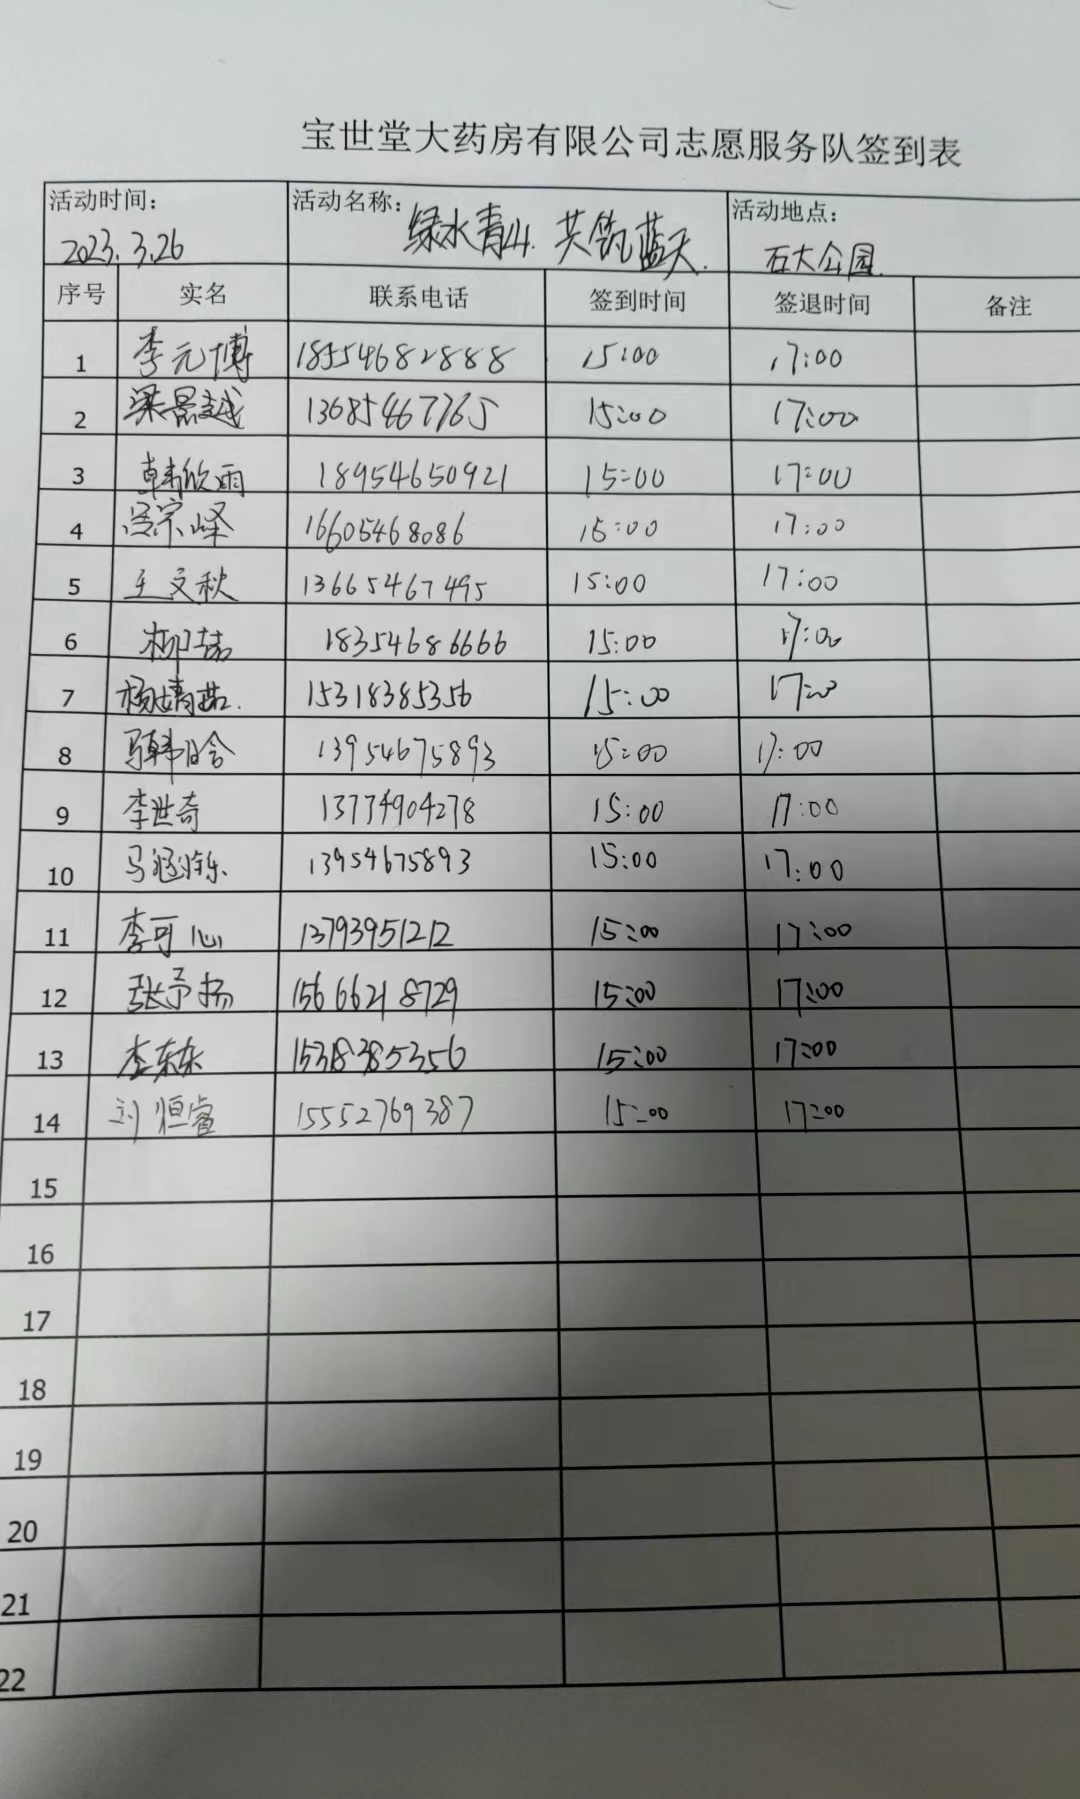 宝世堂大药房有限公司志愿服务队签到表
活动时间: 2023.3.26 活动名称: 绿水青山 共筑蓝天. 活动地点: 石大公园.
序号 实名 联系电话 签到时间 签退时间 备注
1 李元博 18554682888 15:00 17:00
2 梁景越 13685467765 15:00 17:00
3 韩欣雨 18954650921 15:00 17:00
4 宗峰 16605468086 15:00 17:00
5 王文秋 13665467495 15:00 17:00
6 柳喆 18354686666 15:00 17:00
7 杨婧茹. 15318385356 15:00 17:00
8 马韩晗 13954675893 15:00 17:00
9 李世奇 13774904278 15:00 17:00
10 马 13954675893 15:00 17:00
11 李可心 13793951212 15:00 17:00
12 张予扬 15666218729 15:00 17:00
13 李东东 15318385356 15:00 17:00
14 刘恒睿 15552769387 15:00 17:00
15
16
17
18
19
20
21
22